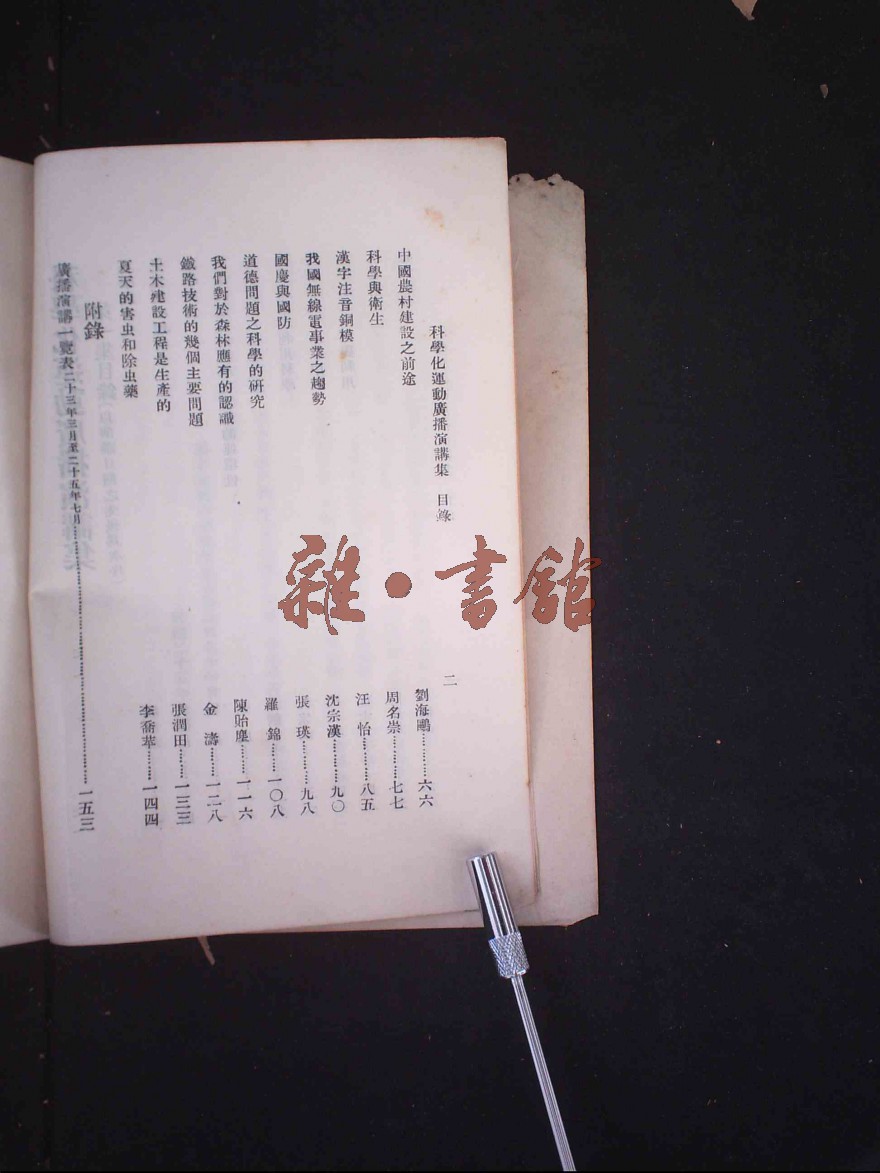 科學化運動廣播演講集 目錄 二
中國農村建設之前途 劉海鷗…………六六
科學與衛生 周名崇………七七
漢字注音銅模 汪 怡………八五
我國無線電事業之趨勢 沈宗漢………九〇
國慶與國防 張 瑛………九八
道德問題之科學的研究 羅 錦………一〇八
我們對於森林應有的認識 陳貽塵………一一六
鐵路技術的幾個主要問題 金 濤………一二八
土木建設工程是生產的 張潤田………一三三
夏天的害虫和除虫藥 李喬苹………一四四
附錄
廣播演講一覽表二十三年三月至二十五年七月………………………………一五三
雜·書館